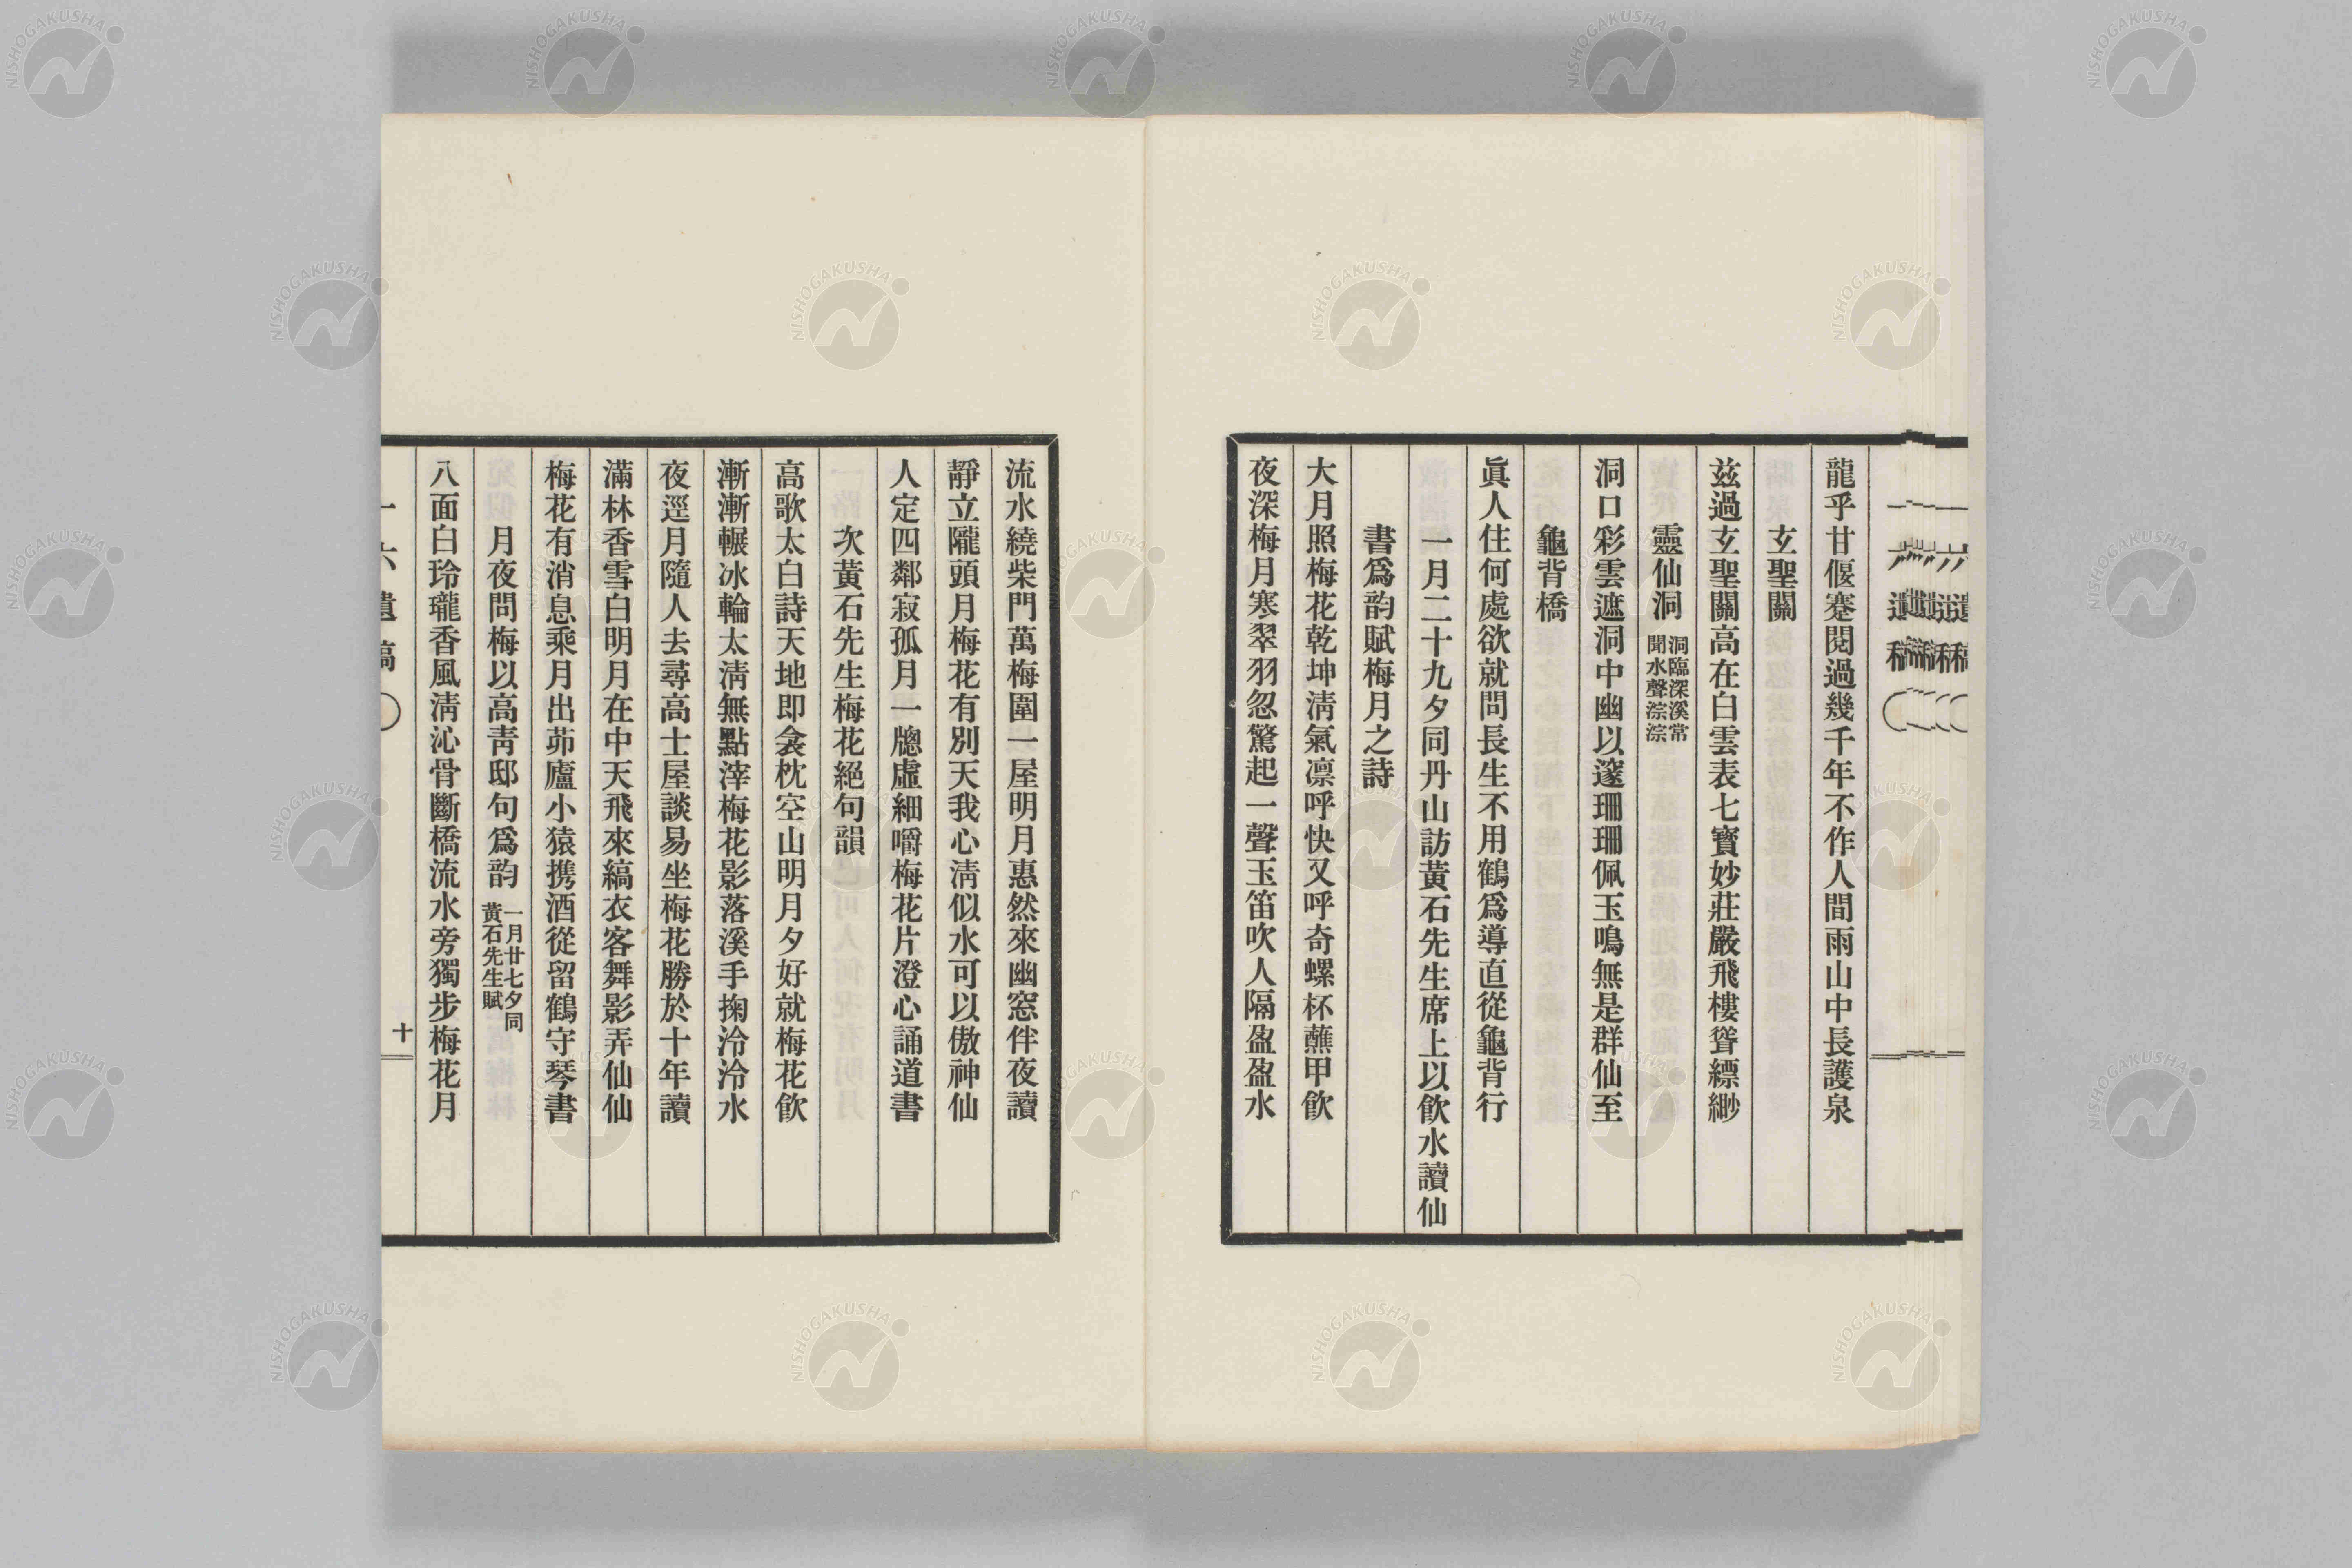 龍乎甘偃蹇閱過幾千年不作人間雨山中長護泉
玄聖關
玆過玄聖關高在白雲表七寳妙莊嚴飛樓聳縹緲
靈仙洞 洞臨深溪常
聞水聲淙淙
洞口彩雲遮洞中幽以邃珊珊佩玉鳴無是群仙至
龜背橋
眞人住何處欲就問長生不用鶴爲導直從龜背行
一月二十九夕同丹山訪黃石先生席上以飮水讀仙
書爲韵賦梅月之詩
大月照梅花乾坤淸氣凛呼快又呼奇螺杯蘸甲飮
夜深梅月寒翠羽忽驚起一聲玉笛吹人隔盈盈水
流水繞柴門萬梅圍一屋明月惠然來幽窓伴夜讀
靜立隴頭月梅花有別天我心淸似水可以傲神仙
人定四鄰寂孤月一牕虛細嚼梅花片澄心誦道書
次黃石先生梅花絕句韻
高歌太白詩天地即衾枕空山明月夕好就梅花飮
漸漸輾冰輪太淸無點滓梅花影落溪手掬泠泠水
夜逕月隨人去尋高士屋談易坐梅花勝於十年讀
滿林香雪白明月在中天飛來縞衣客舞影弄仙仙
梅花有消息乘月出茆廬小猿携酒從留鶴守琴書
月夜問梅以高靑邱句爲韵 一月廿七夕同
黃石先生賦
八面白玲瓏香風淸沁骨斷橋流水旁獨步梅花月
一六遺稿
十
NISHOGAKUSHA